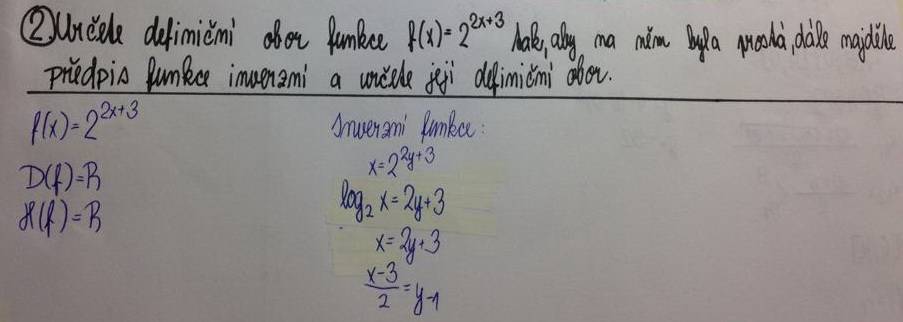 ② Určete definiční obor funkce f(x)=2^{2x+3} tak, aby na něm byla prostá, dále najděte
předpis funkce inverzní a určete její definiční obor.
f(x)=2^{2x+3}
D(f)=R
H(f)=R
Inverzní funkce:
x=2^{2y+3}
log₂ x=2y+3
x=2y+3
\frac{x-3}{2}=y-1